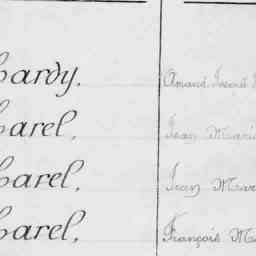 hardy. Amand Joseph
harel. Jean Marie
harel. Jean Mar
harel. François Ma